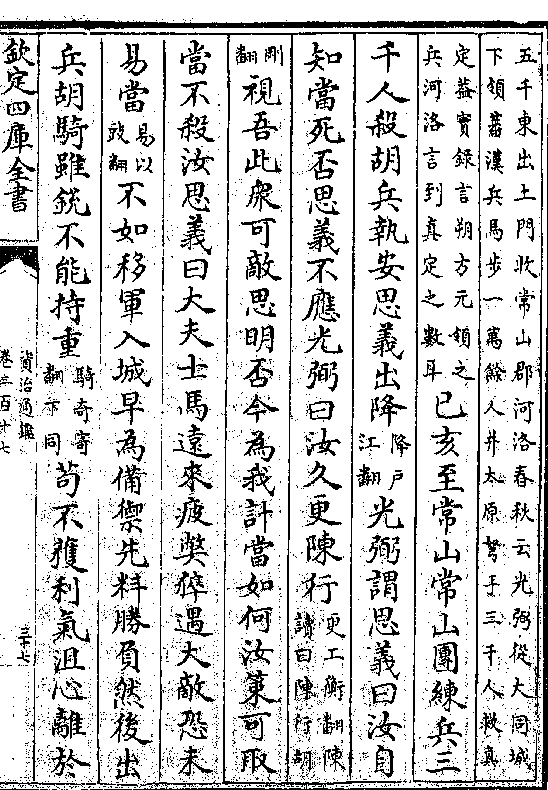 五千東出土門收常山郡河洛春秋云光弼從大同城
下領蕃漢兵馬步一萬餘人并太原弩手三千人救真
定葢實録言朔方元領之
兵河洛言到真定之數耳
己亥至常山常山團練兵三
千人殺胡兵執安思義出降
降户
江翻
光弼謂思義曰汝自
知當死否思義不應光弼曰汝久更陳行
更工衡翻陳
讀曰陣行胡
剛
翻
視吾此衆可敵思明否今為我計當如何汝策可取
當不殺汝思義曰大夫士馬遠來疲獘猝遇大敵恐未
易當
易以
豉翻
不如移軍入城早為備禦先料勝負然後出
兵胡騎雖銳不能持重
騎奇寄
翻下同
苟不獲利氣沮心離於
欽定四庫全書
資治通鑑
卷二百十七
三十七